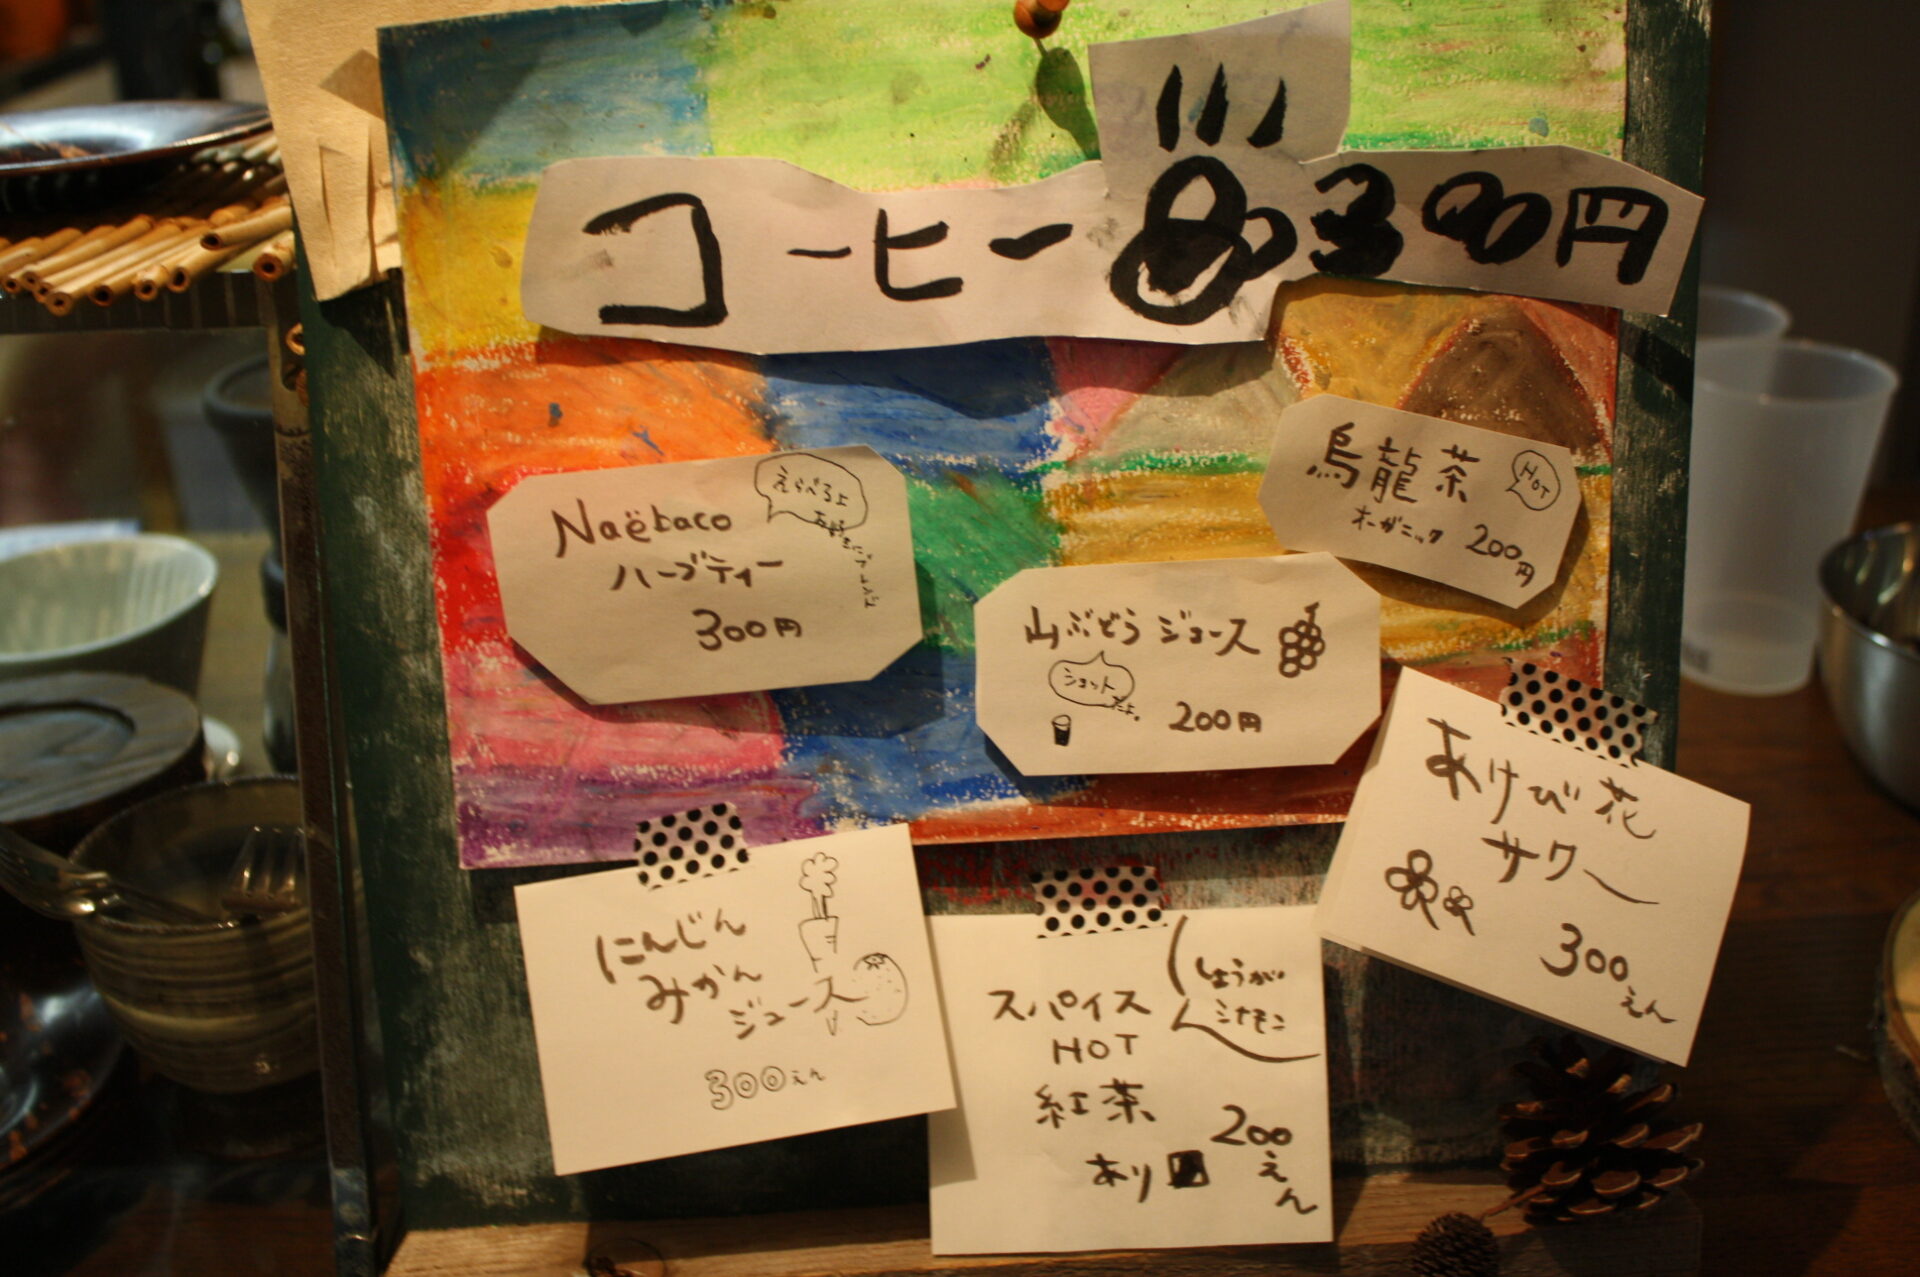 コーヒー 300円
烏龍茶
HOT
オーガニック 200円
えらべるよ
Naëtaco
ハーブティー
300円
山ぶどうジュース
ショット
だよ。
200円
あけび花
サワー
300えん
にんじん
みかん
ジュース
300えん
スパイス
HOT
紅茶
あり
しょうが
シナモン
200えん